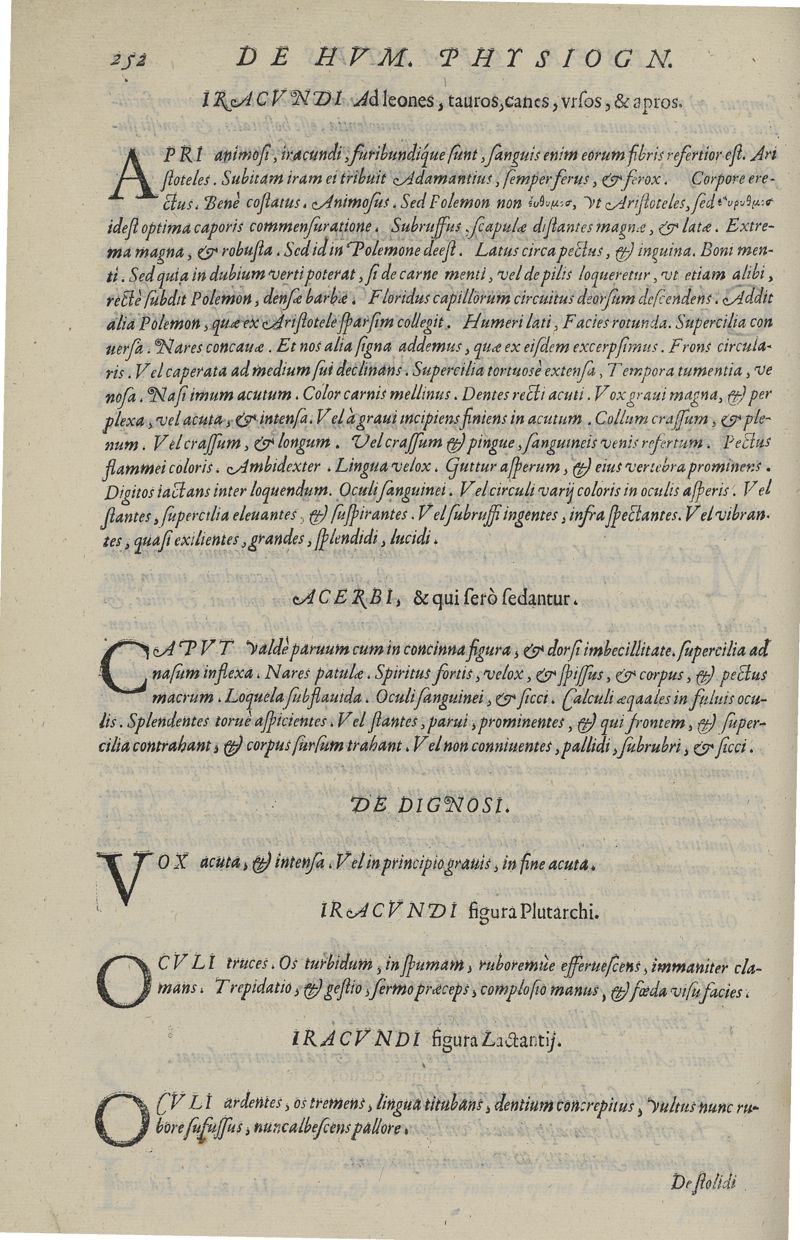 252 DE HVM. PHYSIOGN.
IRACVNDI Ad leones, tauros, canes, vrsos, & apros.
APRI animosi, iracundi, furibundiq́ue sunt, sanguis enim eorum fibris refertior est. Ari
stoteles. Subitam iram ei tribuit Adamantius, semper ferus, & ferox. Corpore ere-
ctus. Benè costatus. Animosus. Sed Polemon non , vt Aristoteles, sed
idest optima caporis commensuratione. Subruffus, scapulæ distantes magnæ, & latæ. Extre-
ma magna, & robusta. Sed id in Polemone deest. Latus circa pectus, & inguina. Boni men-
ti. Sed quia in dubium verti poterat, si de carne menti, vel de pilis loqueretur, vt etiam alibi,
rectè subdit Polemon, densæ barbæ. Floridus capillorum circuitus deorsum descendens. Addit
alia Polemon, quæ ex Aristotele sparsim collegit. Humeri lati, Facies rotunda. Supercilia con
uersa. Nares concauæ. Et nos alia signa addemus, quæ ex eisdem excerpsimus. Frons circula-
ris. Vel caperata ad medium sui declinans. Supercilia tortuosè extensa, Tempora tumentia, ve
nosa. Nasi imum acutum. Color carnis mellinus. Dentes recti acuti. Vox graui magna, & per
plexa, vel acuta, & intensa. Vel à graui incipiens finiens in acutum. Collum crassum, & ple-
num. Vel crassum, & longum. Vel crassum & pingue, sanguineis venis refertum. Pectus
flammei coloris. Ambidexter. Lingua velox. Guttur asperum, & eius vertebra prominens.
Digitos iactans inter loquendum. Oculi sanguinei. Vel circuli varij coloris in oculis asperis. Vel
stantes, supercilia eleuantes, & suspirantes. Vel subruffi ingentes, infra spectantes. Vel vibran-
tes, quasi exilientes, grandes, splendidi, lucidi.
ACERBI, & qui serò sedantur.
CAPVT valdè paruum cum in concinna figura, & dorsi imbecillitate. supercilia ad
nasum inflexa. Nares patulæ. Spiritus fortis, velox, & spissus, & corpus, & pectus
macrum. Loquela subflauida. Oculi sanguinei, & sicci. Calculi æqaales in fuluis ocu-
lis. Splendentes toruè aspicientes. Vel stantes, parui, prominentes, & qui frontem, & super-
cilia contrahant, & corpus sursum trahant. Vel non conniuentes, pallidi, subrubri, & sicci.
DE DIGNOSI.
VOX acuta, & intensa. Vel in principio grauis, in fine acuta.
IRACVNDI figura Plutarchi.
OCVLI truces. Os turbidum, in spumam, ruboremùe efferuescens, immaniter cla-
mans. Trepidatio, & gestio, sermo præceps, complosio manus, & fœda visu facies.
IRACVNDI figura Lactantij.
OCVLI ardentes, os tremens, lingua titubans, dentium concrepitus, vultus nunc ru-
bore suffussus, nunc albescens pallore.
De stolidi